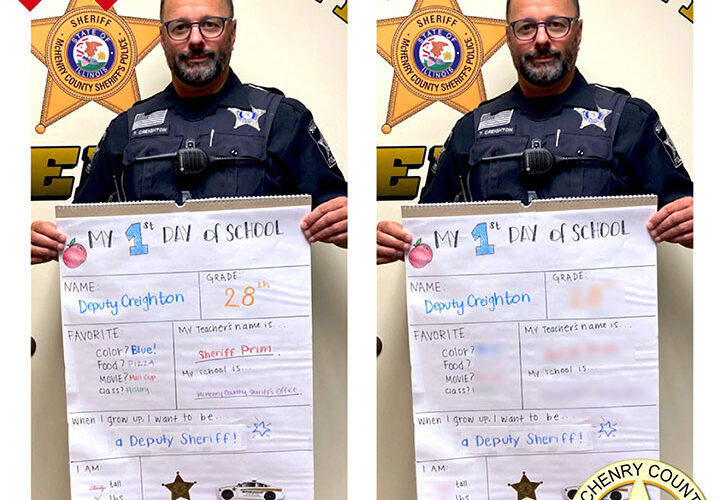 SHERIFF
STATE OF
ILLINOIS
McHENRY COUNTY SHERIFF'S POLICE
T. CREIGHTON
MY 1st DAY of SCHOOL
NAME:
Deputy Creighton
GRADE:
28th
FAVORITE
COLOR? Blue!
Food? PIZZA
MOVIE? Mall Cop
Class? History
My Teacher's name is...
Sheriff Prim
My school is...
McHenry County Sheriff's Office
When I grow up, I want to be...
a Deputy Sheriff!
I AM:
tall
lbs
SHERIFF
STATE OF
ILLINOIS
McHENRY COUNTY SHERIFF'S POLICE
T. CREIGHTON
MY 1st DAY of SCHOOL
NAME:
Deputy Creighton
GRADE:
FAVORITE
COLOR?
Food?
MOVIE?
Class?
My Teacher's name is...
My school is...
When I grow up, I want to be...
a Deputy Sheriff!
I AM:
tall
MCHENRY COUNTY